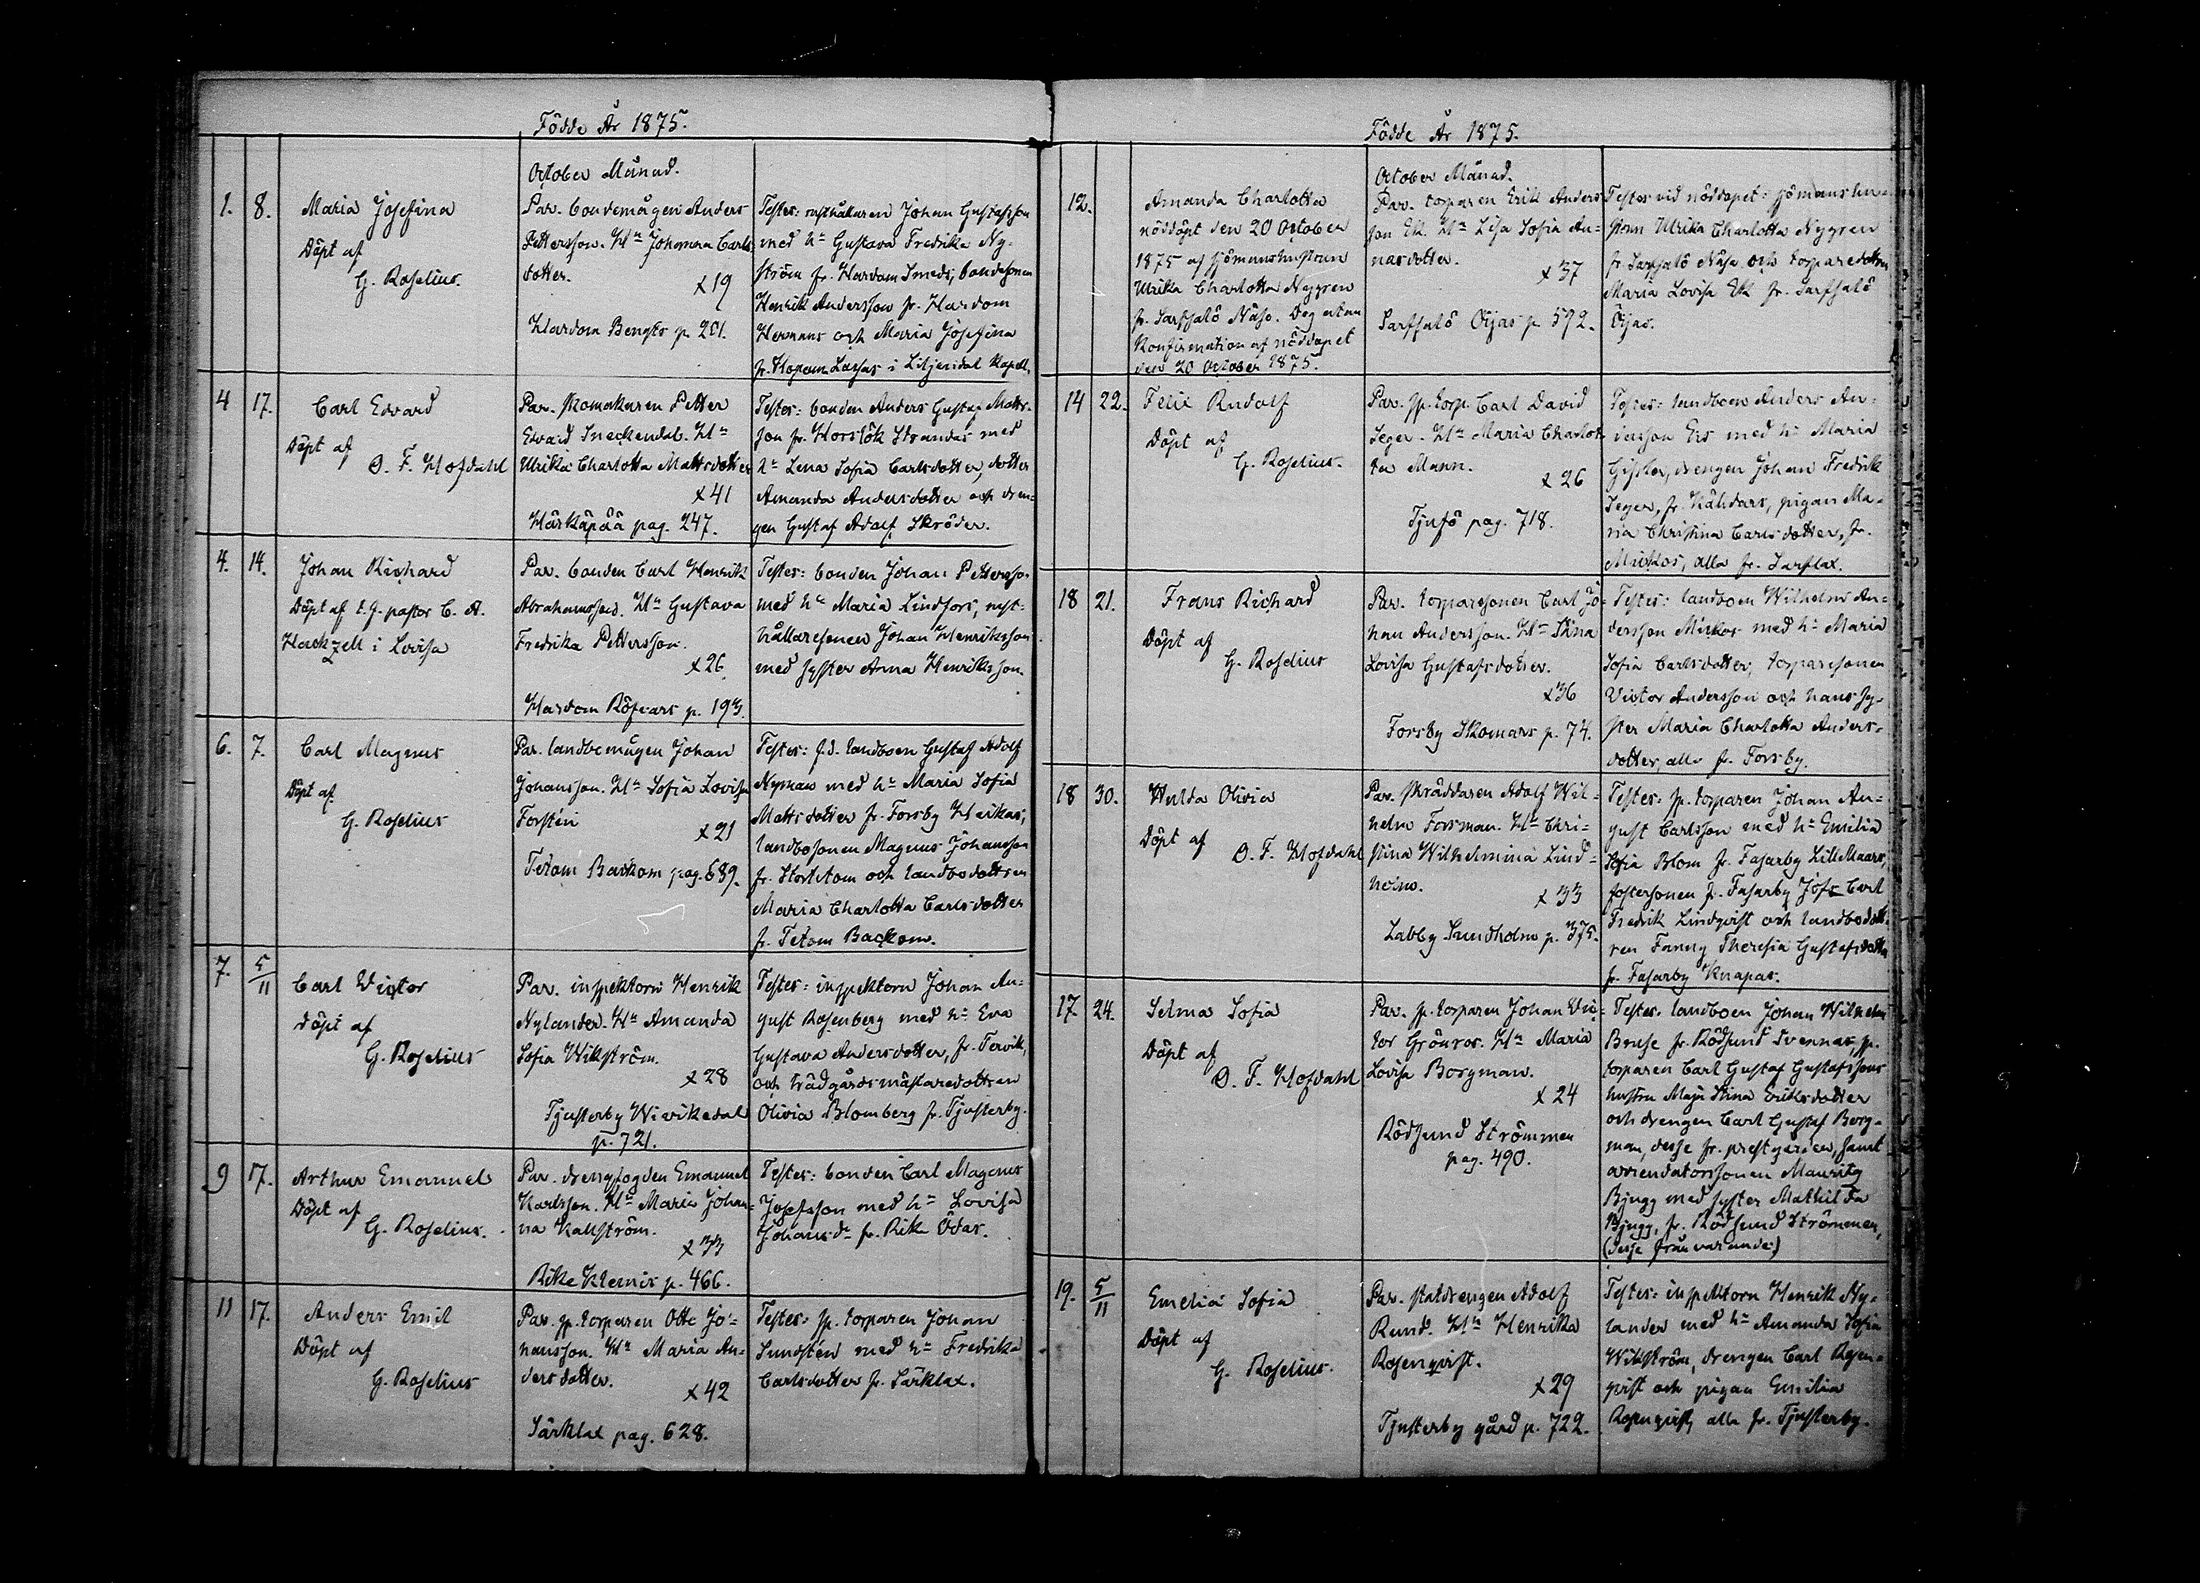 Födde År 1875.
October Månad.
1. 8. Maria Josefina
Döpt af
G. Roselius.
Par. bondemågen Anders
Pettersson. Hu Johanna Carls
dotter.
x 19
Hardom Bengts p. 201.
Testes: rusthållaren Johan Gustafsson
med hu Gustava Fredrika Ny-
ström fr. Hardom Smeds, bondesonen
Henrik Andersson fr. Hardom
Hermans och Maria Josefina
fr. Hopom Lassas i Liljendal Kapell.
4 17. Carl Edvard
Döpt af
O. F. Hofdahl
Par. skomakaren Petter
Edvard Sneckendal. Hu
Ulrika Charlotta Mattsdotter
x 41
Härkäpää pag. 247.
Testes: bonden Anders Gustaf Matts-
son fr. Horslök Strandas med
hu Lena Sofia Carlsdotter, dotter
Amanda Andersdotter och dren-
gen Gustaf Adolf Skröder.
4. 14. Johan Richard
Döpt af t.f. pastor C. A.
Hackzell i Lovisa
Par. bonden Carl Henrik
Abrahamsson. Hu Gustava
Fredrika Pettersson.
x 26
Hardom Röfvars p. 193.
Testes: bonden Johan Pettersson
med hu Maria Lindfors, rust-
hållaresonen Johan Henriksson
med syster Anna Henriksson.
6. 7. Carl Magnus
Döpt af
G. Roselius
Par. landbomågen Johan
Johansson. Hu Sofia Lovisa
Forstén
x 21
Tetom Backom pag. 689.
Testes: f.d. landboen Gustaf Adolf
Nyman med hu Maria Sofia
Mattsdotter fr. Forsby Heikas,
landbosonen Magnus Johansson
fr. Stortetom och landbodottren
Maria Charlotta Carlsdotter
fr. Tetom Backom.
7. 5/11 Carl Victor
döpt af
G. Roselius
Par. inspektorn Henrik
Nylander. Hu Amanda
Sofia Wikström.
x 28
Tjusterby Wivikedal
p. 721.
Testes: inspektorn Johan Au-
gust Rosenberg med hu Eva
Gustava Andersdotter, fr. Tervik,
och trädgårdsmästaredottren
Olivia Blomberg fr. Tjusterby.
9 17. Arthur Emanuel
Döpt af
G. Roselius.
Par. drengfogden Emanuel
Karlsson. Hu Maria Johan-
na Kallström.
x 33
Rike Klemis p. 466.
Testes: bonden Carl Magnus
Josefsson med hu Lovisa
Johansdr fr. Rike Ödas.
11 17. Anders Emil
Döpt af
G. Roselius
Par. sp. torparen Otto Jo-
hansson. Hu Maria An-
dersdotter.
x 42
Särklax pag. 628.
Testes: sp. torparen Johan
Sundstén med hu Fredrika
Carlsdotter fr. Särklax.
Födde År 1875.
October Månad.
12. Amanda Charlotta
nöddöpt den 20 October
1875 af sjömanshustrun
Ulrika Charlotta Nygren
fr. Sarfsalö Näse. Dog utan
Konfirmation af nöddopet
den 20 October 1875.
Par. torparen Erik Anders
son Ek. Hu Lisa Sofia An-
narsdotter.
x 37
Sarfsalö Öijas p. 572.
Testes vid nöddopet: sjömanshu-
strun Ulrika Charlotta Nygren
fr. Sarfsalö Näse och torparedottren
Maria Lovisa Ek fr. Sarfsalö
Öijas.
14 22. Felix Rudolf
Döpt af
G. Roselius.
Par. sp. torp. Carl David
Seger. Hu Maria Charlot-
ta Mann.
x 26
Tjufö pag. 718.
Testes: landboen Anders An-
dersson Ers med hu Maria
Gissler, drengen Johan Fredrik
Seger, fr. pigan Ma-
ria Christina Carlsdotter, fr.
Mickos, alla fr. Sarflax.
18 21. Frans Richard
Döpt af
G. Roselius
Par. torparesonen Carl Jo-
han Andersson. Hu Stina
Lovisa Gustafsdotter.
x 36
Forsby Skomars p. 74.
Testes: landboen Wilhelm An-
dersson Mickos med hu Maria
Sofia Carlsdotter, torparesonen
Victor Andersson och hans sy-
ster Maria Charlotta Anders-
dotter, alla fr. Forsby.
18 30. Hulda Olivia
Döpt af
O. F. Hofdahl
Par. skräddaren Adolf Wil-
helm Forsman. Hu Chri-
stina Wilhelmina Lind-
holm.
x 33
Labby Sundholm p. 375.
Testes: sp. torparen Johan Au-
gust Carlsson med hu Emilia
Sofia Blom fr. Fasarby LillMaars,
fostersonen fr. Fasarby Jofs Carl
Fredrik Lindqvist och landbodott-
ren Fanny Theresia Gustafsdotter
fr. Fasarby Knapas.
17. 24. Selma Sofia
Döpt af
O. F. Hofdahl
Par. sp. torparen Johan Vic-
tor Grönros. Hu Maria
Lovisa Borgman.
x 24
Rödsund Strömmen
pag. 490.
Testes: landboen Johan Wilhelm
Bruse fr. Rödsund Svennas, sp.
torparen Carl Gustaf Gustafssons
hustru Maja Stina Eriksdotter
och drengen Carl Gustaf Borg-
man, desse fr. prestgården, samt
arrendatorssonen Mauritz
Bjugg med syster Mathilda
Bjugg, fr. Rödsund Strömmen,
(desse frånvarande)
19. 5/11 Emelia Sofia
Döpt af
G. Roselius.
Par. statdrengen Adolf
Rund. Hu Henrika
Rosenqvist.
x 29
Tjusterby gård p. 722.
Testes: inspektorn Henrik Ny-
lander med hu Amanda Sofia
Wikström, drengen Carl Rosen-
qvist och pigan Emilia
Rosenqvist, alla fr. Tjusterby.